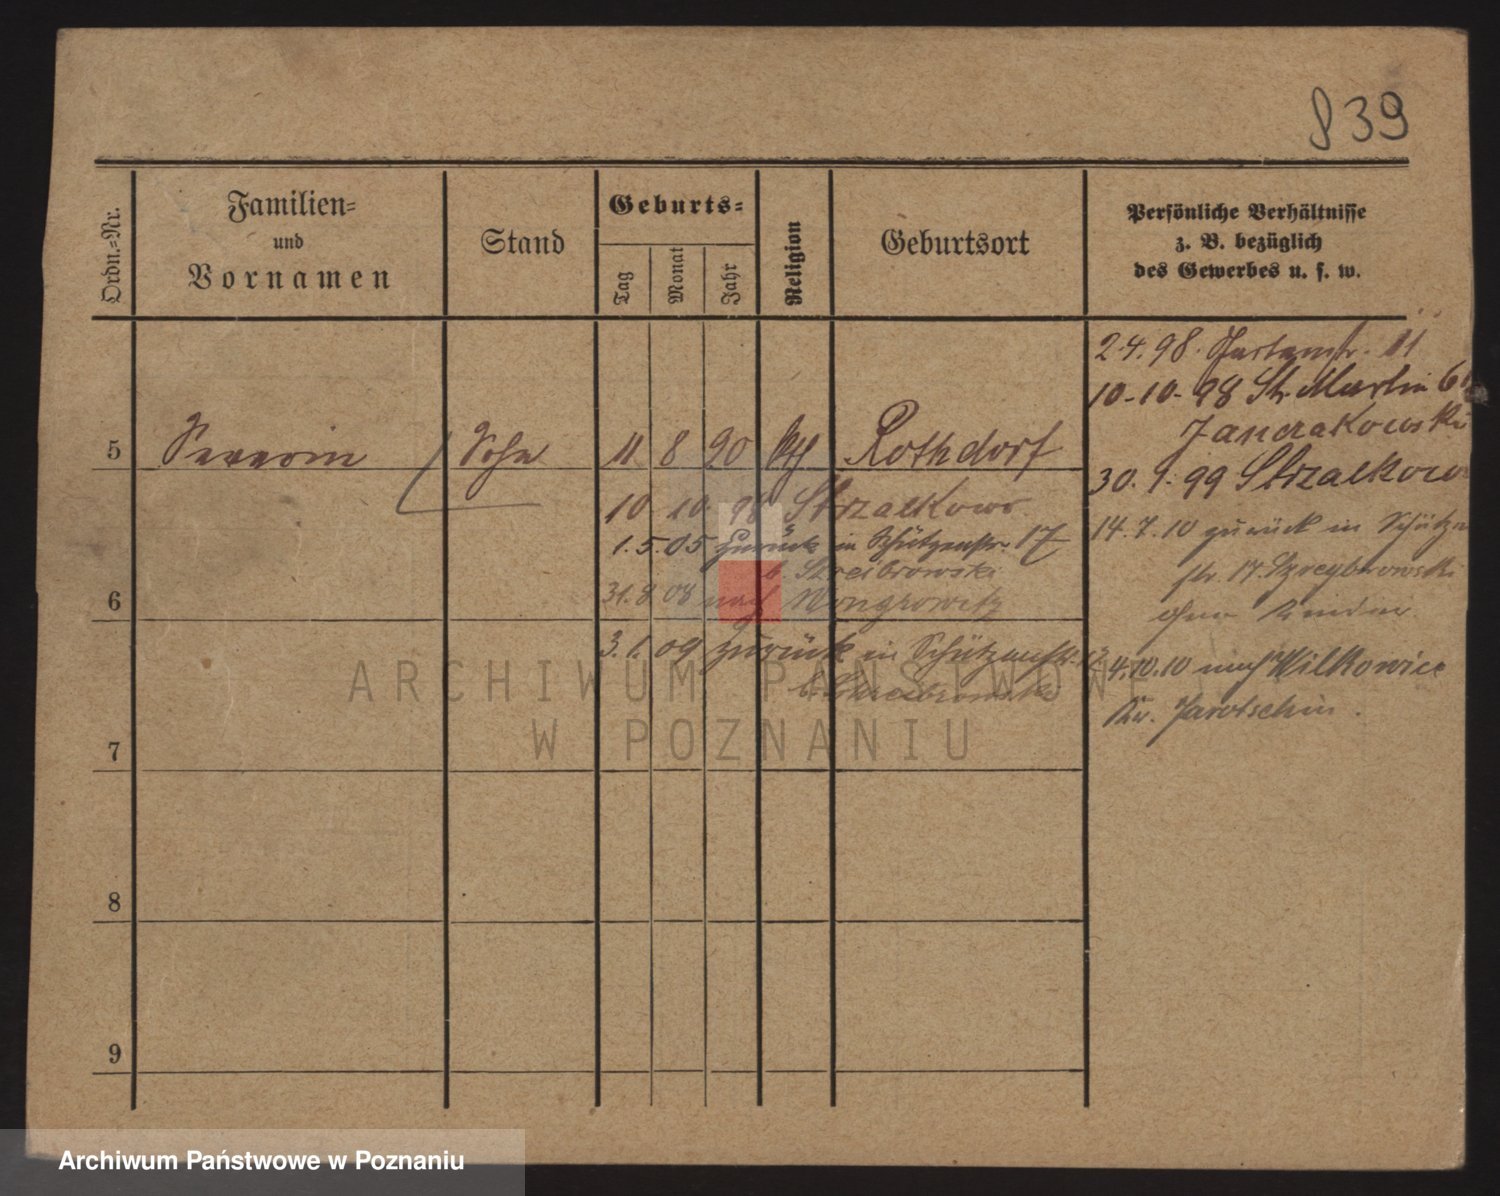 839
Ordn.=Nr.
Familien=
und
Vornamen
Stand
Geburts=
Tag
Monat
Jahr
Religion
Geburtsort
Persönliche Verhältnisse
z. B. bezüglich
des Gewerbes u. s. w.
2.4.98. 11
10-10-98 St. Martin
5 Severin Sohn 11 8 90 kth Rothdorf
30.9.99 Strzalkowo
10 10. 98 Strzalkowo
1.5.05 zurück in Schützenstr. 17
14.7.10 zurück in
str. 17.
6
31.8.08 nach Wongrowitz
3.1.09 zurück in Schützenstr.
4.10.10 nach Wilkowice
Kr. Jarotschin.
7
8
9
ARCHIWUM PAŃSTWOWE
W POZNANIU
Archiwum Państwowe w Poznaniu